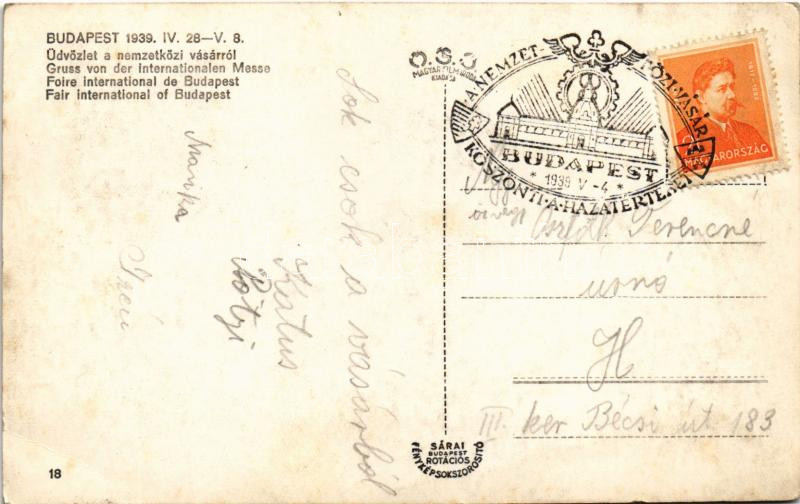 BUDAPEST 1939. IV. 28—V. 8.
Üdvözlet a nemzetközi vásárról
Gruss von der Internationalen Messe
Foire international de Budapest
Fair international of Budapest
Sok csok a vásárból
Kertus
Pötyi
Marika
Irén
MAGYAR FILM IRODA
KIADÁSA
A·NEMZETKÖZI·VÁSÁR
BUDAPEST
* 1939 V-4 *
KÖSZÖNTI·A·HAZATÉRTEKET
MAGYARORSZÁG
özvegy
Ferencné
urnő
H
III. ker Bécsi út. 183
SÁRAI
BUDAPEST
ROTÁCIÓS
FÉNYKÉPSOKSZOROSÍTÓ
18